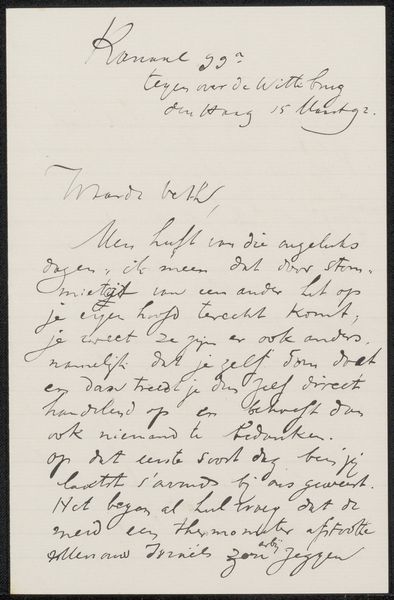 Kanaal 99a
tegenover de Wittebrug
den Haag 15 Maart 92.
Waarde Veth,
Men heeft van die ongeluks
dagen, ik meen dat door stom-
miteit van een ander het op
je eigen hoofd terecht komt;
je weet ze zijn er ook anders,
namelijk dat je zelf dom doet
en dan treedt je dus zelf direct
handelend op en behoeft dan
ook niemand te bedanken.
op dat eerste soort dag ben jij
laatst s'avonds bij ons geweest.
Het begon al heel vroeg dat de
meid een thermometer afstootte
Israëls zou zeggen